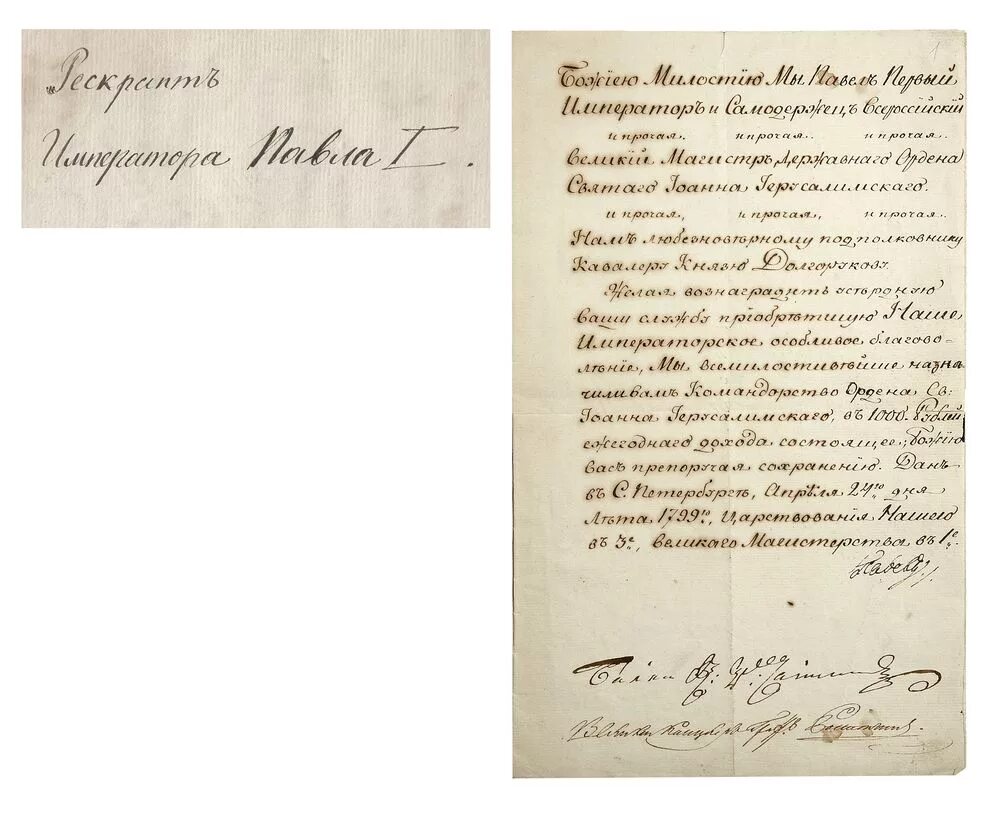 „Рескриптъ
Императора Павла I.
1
Божіею Милостію Мы Павелъ Первый
Императоръ и Самодержецъ Всероссійскій
и прочая. и прочая. и прочая.
Великій Магистръ Державнаго Ордена
Святаго Іоанна Іерусалимскаго.
и прочая, и прочая, и прочая.
Намъ любезновѣрному подполковнику
Кавалеру Князю Долгорукову.
Желая вознаградить усѣрдную
вашу службу пріобрѣтшую Наше
Императорское особливое благово-
лѣніе, Мы всемилостивѣйше назна
чили вамъ Командорство Ордена Св:
Іоанна Іерусалимскаго, въ 1000. Рублей
ежегоднаго дохода состоящее; Божію
васъ препоручая сохраненію. Данъ
въ С. Петербургѣ, Апрѣля 24го дня
Лѣта 1799го, Царствованія Нашего
въ 3е, великаго Магистерства въ 1е.
Павелъ
Вице Канцлеръ Граф